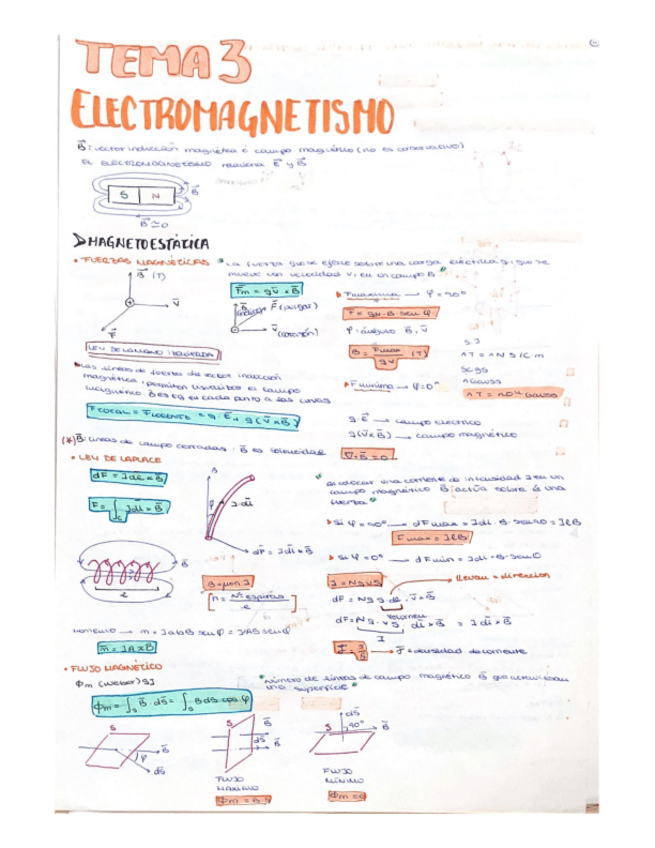 TEMA 3
ELECTROMAGNETISMO
B⃗: vector inducción magnética o campo magnético (no es conservativo)
El ELECTROMAGNETISMO relaciona E⃗ y B⃗
S N B⃗
B⃗ ≃ 0
MAGNETOESTÁTICA
• FUERZAS MAGNÉTICAS "La fuerza que se ejerce sobre una carga eléctrica q, que se
mueve con velocidad v, en un campo B"
B⃗ (T)
V⃗
F⃗
F⃗m = q v⃗ x B⃗
B⃗ (índice) F⃗ (pulgar)
V⃗ (corazón)
Fmáxima → φ = 90º
F = qv·B·sen φ
φ: ángulo B⃗, v⃗
B = Fmax / qv (T)
S.I
1T = 1N S/C·m
SCGS
1Gauss
1T = 10⁴ Gauss
Fmínima → φ = 0º
LEY DE LA MANO IZQUIERDA
Las líneas de fuerza de vector inducción
magnética, permiten visualizar el campo
magnético. B⃗ es tg en cada punto a las curvas
F TOTAL = F LORENTZ = q·E⃗ + q(v⃗xB⃗)
q·E⃗ → campo eléctrico
q(v⃗xB⃗) → campo magnético
(*) B⃗: líneas de campo cerradas. B⃗ es solenoidal ∇·B⃗ = 0
• LEY DE LAPLACE
dF⃗ = Idl⃗ x B⃗
F⃗ = ∫ Idl⃗ x B⃗
B
φ
I·dl⃗
dF⃗ = Idl⃗ x B⃗
"Al colocar una corriente de intensidad I en un
campo magnético B⃗, actúa sobre él una
fuerza"
Si φ = 90º → dFmax = Idl·B·sen90 = IlB
Fmax = IlB
Si φ = 0º → dFmin = Idl·B·sen0
B⃗
l
B = μ₀nI
[n = Nº espiras / l]
I = Nqvs
llevan = dirección
dF = Nqs·dl·v⃗xB⃗
volumen
dF = Nq·vs dl⃗xB⃗ = Idl⃗xB⃗
I
J⃗ = densidad de corriente
momento → m = IabB senφ = IAB senφ
m⃗ = IAxB⃗
• FLUJO MAGNÉTICO
Φm (weber) SI
"Número de líneas de campo magnético B⃗ que atraviesan
una superficie"
Φm = ∫s B⃗·ds⃗ = ∫s B ds cos φ
S B⃗ φ ds⃗
S B⃗ ds⃗ B⃗
S ds⃗ 90º B⃗
FLUJO
MÁXIMO
Φm = B·S
FLUJO
MÍNIMO
Φm = 0